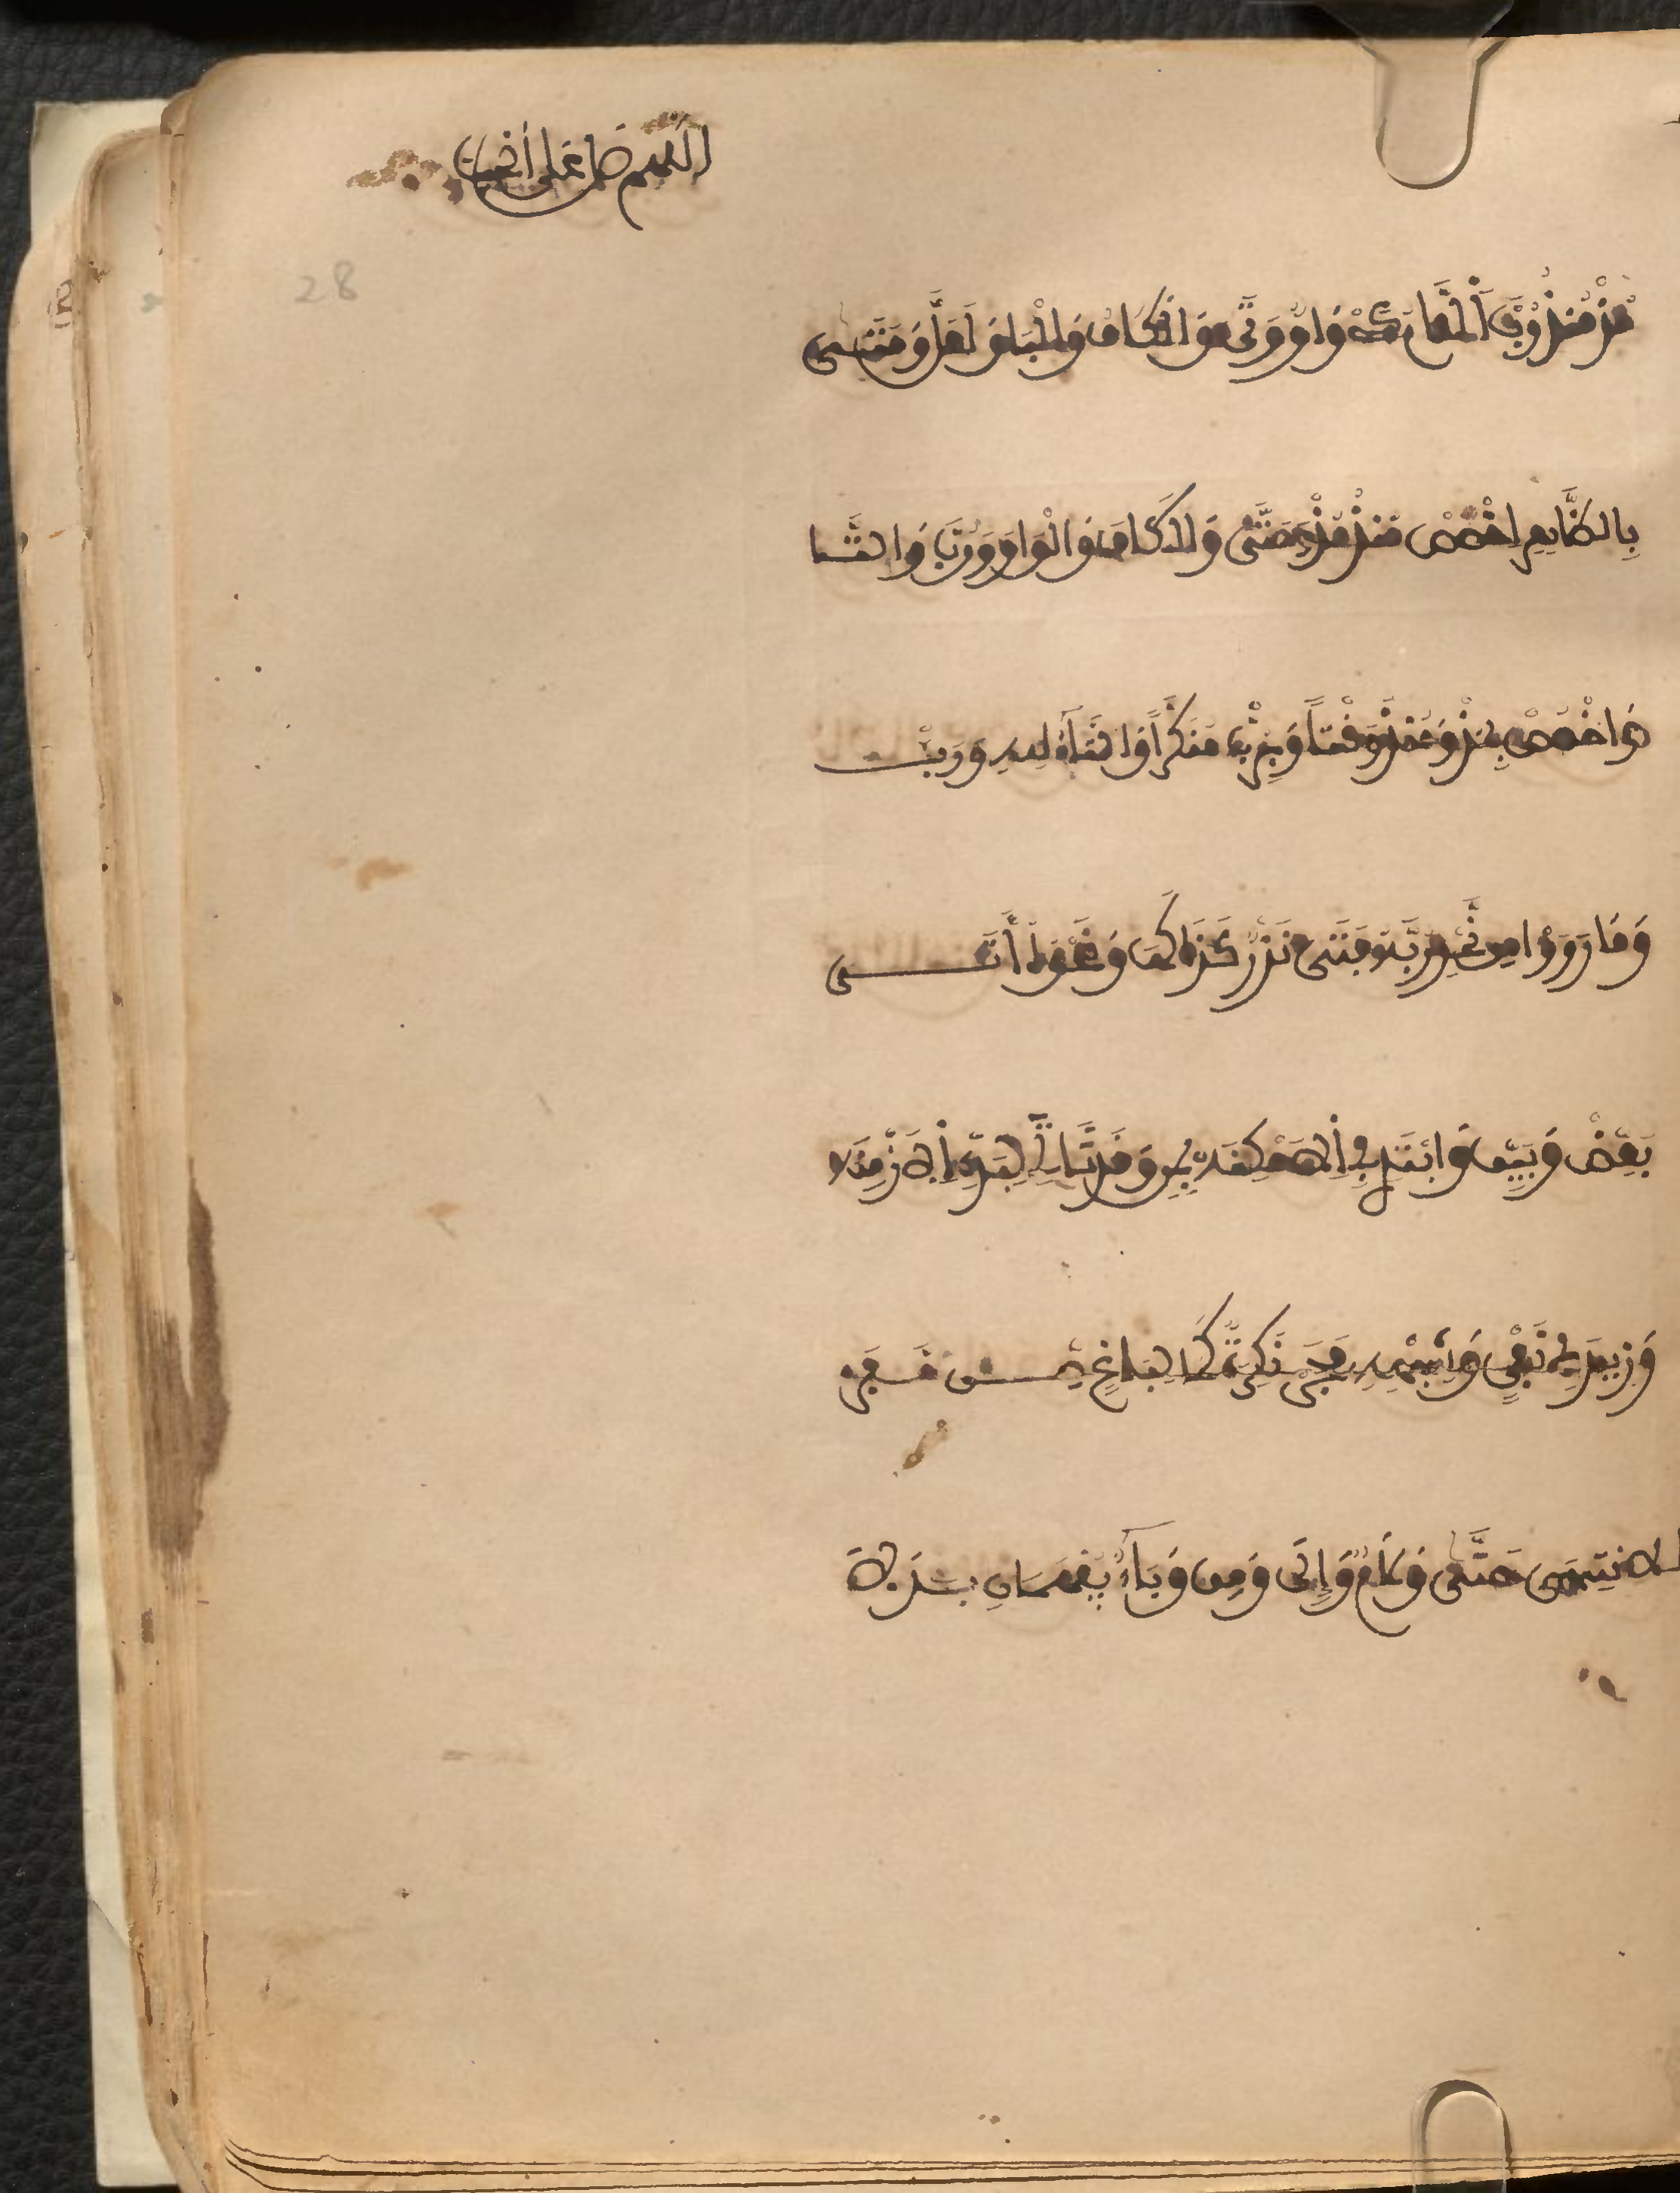 اللهم صل على
28
مُذْ مُنْذُ رُبَّ اللَّامُ كَيْ وَاوٌ وَتَا وَالْكَافُ وَالْبَا وَلَعَلَّ وَمَتَى
بِالظَّاهِرِ اخْصُصْ مُنْذُ مُذْ وَحَتَّى وَالْكَافَ وَالْوَاوَ وَرُبَّ وَالتَّا
وَاخْصُصْ بِمُذْ وَمُنْذُ وَقْتاً وَبِرُبْ مُنَكَّراً وَالتَّاءُ لِلهِ وَرَبْ
وَمَا رَوَوْا مِن نَّحْوِ رُبَّهُ فَتَى نَزْرٌ كَذَا كَهَا وَنَحْوُهُ أَتَى
بَعِّضْ وَبَيِّنْ وَابْتَدِئْ فِي الْأَمْكِنَهْ بِمِنْ وَقَدْ تَأْتِي لِبَدْءِ الْأَزْمِنَهْ
وَزِيدَ فِي نَفْيٍ وَشِبْهِهِ فَجَرّْ نَكِرَةً كَمَا لِبَاغٍ مِن مَفَرّْ
لِلِانْتِهَى حَتَّى وَلَامٌ وَإِلَى وَمِن وَبَاءٌ يُفْهِمَانِ بَدَلَا